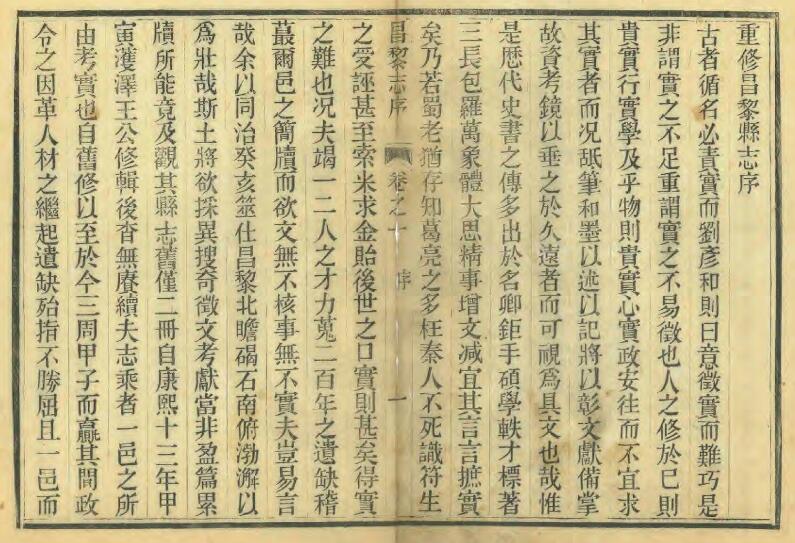 重修昌黎縣志序
古者循名必責實而劉彥和則曰意徵實而難巧是
非謂實之不足重謂實之不易徵也人之修於己則
貴實行實學及乎物則貴實心實政安往而不宜求
其實者而况舐筆和墨以述以記將以彰文獻備掌
故資考鏡以垂之於久遠者而可視爲具文也哉惟
是歷代史書之傳多出於名卿鉅手碩學軼才標著
三長包羅萬象體大思精事增文减宜其言言摭實
矣乃若蜀老猶存知葛亮之多枉秦人不死識符生
昌黎志序 卷之十 序 一
之受誣甚至索米求金貽後世之口實則甚矣得實
之難也况夫竭一二人之才力蒐二百年之遺缺稽
蕞爾邑之簡牘而欲文無不核事無不實夫豈易言
哉余以同治癸亥筮仕昌黎北瞻碣石南俯渤澥以
爲壯哉斯土將欲採異搜奇徵文考獻當非盈篇累
牘所能竟及觀其縣志舊僅二冊自康熙十三年甲
寅濩澤王公修輯後杳無賡續夫志乘者一邑之所
由考實也自舊修以至於今三周甲子而羸其間政
令之因革人材之繼起遺缺殆指不勝屈且一邑而